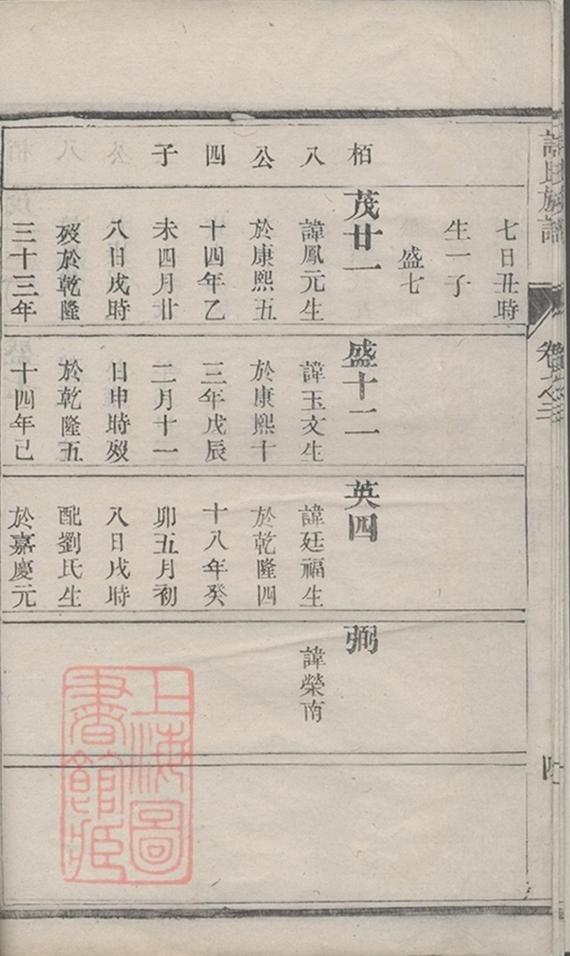 氏族譜
栢八公四子
七日丑時
生一子
盛七
茂廿一
諱鳳元生
於康熙五
十四年乙
未四月廿
八日戌時
歿於乾隆
三十三年
盛十二
諱玉文生
於康熙十
三年戊辰
二月十一
日申時歿
於乾隆五
十四年己
英四
諱廷福生
於乾隆四
十八年癸
卯五月初
八日戌時
配劉氏生
於嘉慶元
弼
諱榮南
上海圖
書館藏